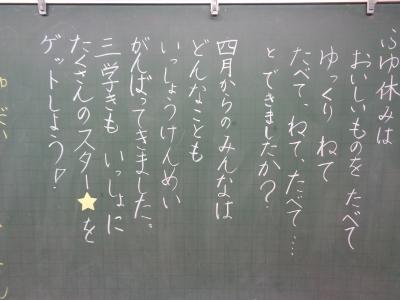 ふゆ休みは
おいしいものを たべて
ゆっくり ねて
たべて、ねて、たべて…
とできましたか?
四月からのみんなは
どんなことも
いっしょうけんめい
がんばってきました。
三学きも いっしょに
たくさんのスター★を
ゲットしよう!